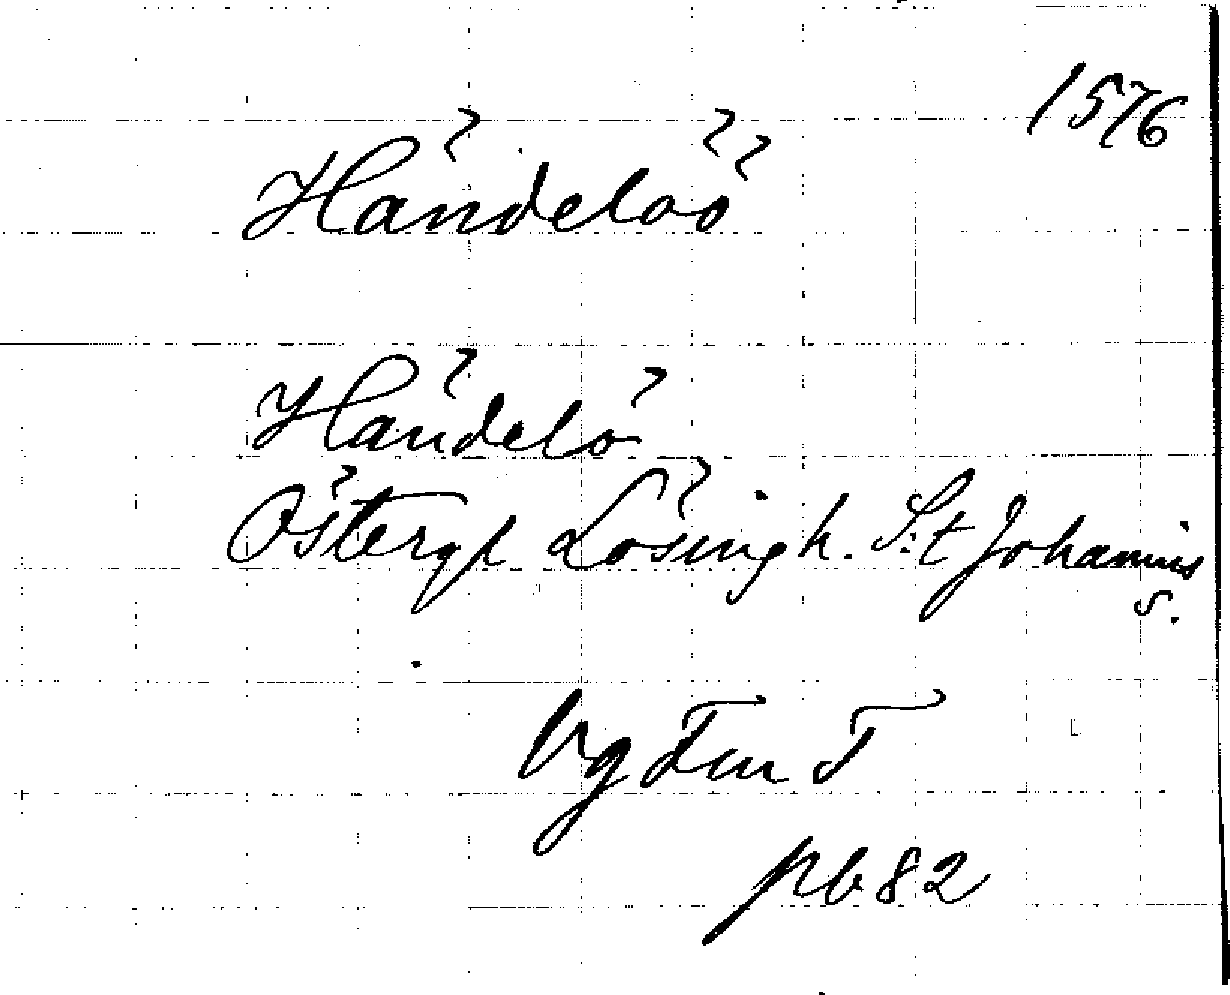 1576
Händelöö
Händelö
Östergl Lösing h. S:t Johannis
s.
Vg Fur F
nb 82